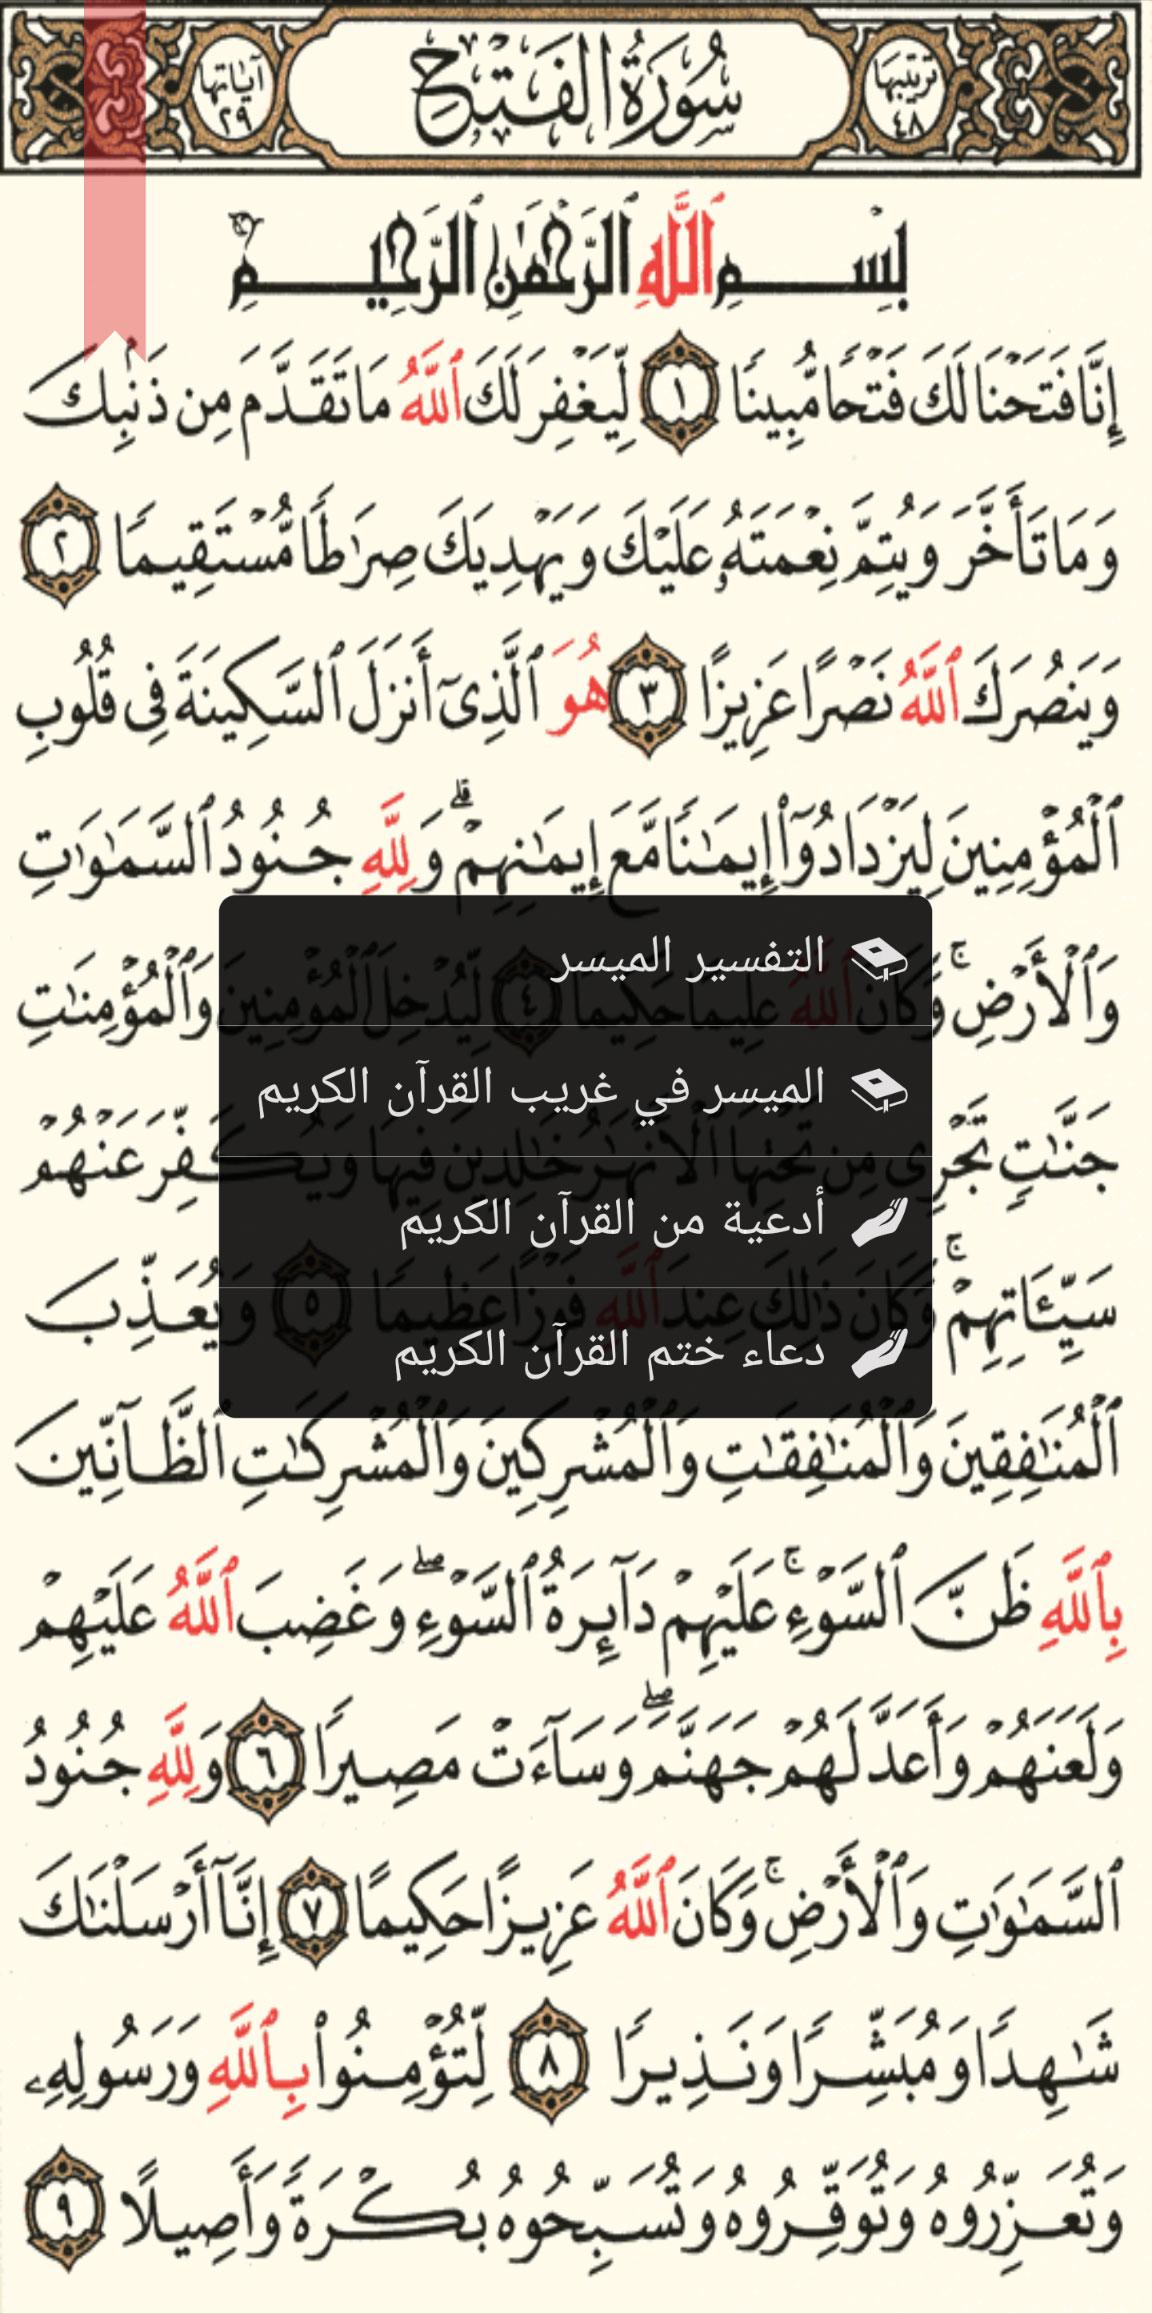 تَرتيبها ٤٨
سُورَةُ الفَتْحِ
آيَاتها ٢٩
بِسْمِ ٱللَّهِ ٱلرَّحْمَٰنِ ٱلرَّحِيمِ
إِنَّا فَتَحْنَا لَكَ فَتْحًا مُّبِينًا ١ لِّيَغْفِرَ لَكَ ٱللَّهُ مَا تَقَدَّمَ مِن ذَنۢبِكَ
وَمَا تَأَخَّرَ وَيُتِمَّ نِعْمَتَهُۥ عَلَيْكَ وَيَهْدِيَكَ صِرَٰطًا مُّسْتَقِيمًا ٢
وَيَنصُرَكَ ٱللَّهُ نَصْرًا عَزِيزًا ٣ هُوَ ٱلَّذِىٓ أَنزَلَ ٱلسَّكِينَةَ فِى قُلُوبِ
ٱلْمُؤْمِنِينَ لِيَزْدَادُوٓا۟ إِيمَٰنًا مَّعَ إِيمَٰنِهِمْ ۗ وَلِلَّهِ جُنُودُ ٱلسَّمَٰوَٰتِ
وَٱلْأَرْضِ ۚ وَكَانَ ٱللَّهُ عَلِيمًا حَكِيمًا ٤ لِّيُدْخِلَ ٱلْمُؤْمِنِينَ وَٱلْمُؤْمِنَٰتِ
التفسير الميسر
الميسر في غريب القرآن الكريم
جَنَّٰتٍ تَجْرِى مِن تَحْتِهَا ٱلْأَنْهَٰرُ خَٰلِدِينَ فِيهَا وَيُكَفِّرَ عَنْهُمْ
أدعية من القرآن الكريم
سَيِّـَٔاتِهِمْ ۚ وَكَانَ ذَٰلِكَ عِندَ ٱللَّهِ فَوْزًا عَظِيمًا ٥ وَيُعَذِّبَ
دعاء ختم القرآن الكريم
ٱلْمُنَٰفِقِينَ وَٱلْمُنَٰفِقَٰتِ وَٱلْمُشْرِكِينَ وَٱلْمُشْرِكَٰتِ ٱلظَّآنِّينَ
بِٱللَّهِ ظَنَّ ٱلسَّوْءِ ۚ عَلَيْهِمْ دَآئِرَةُ ٱلسَّوْءِ ۖ وَغَضِبَ ٱللَّهُ عَلَيْهِمْ
وَلَعَنَهُمْ وَأَعَدَّ لَهُمْ جَهَنَّمَ ۖ وَسَآءَتْ مَصِيرًا ٦ وَلِلَّهِ جُنُودُ
ٱلسَّمَٰوَٰتِ وَٱلْأَرْضِ ۚ وَكَانَ ٱللَّهُ عَزِيزًا حَكِيمًا ٧ إِنَّآ أَرْسَلْنَٰكَ
شَٰهِدًا وَمُبَشِّرًا وَنَذِيرًا ٨ لِّتُؤْمِنُوا۟ بِٱللَّهِ وَرَسُولِهِۦ
وَتُعَزِّرُوهُ وَتُوَقِّرُوهُ وَتُسَبِّحُوهُ بُكْرَةً وَأَصِيلًا ٩